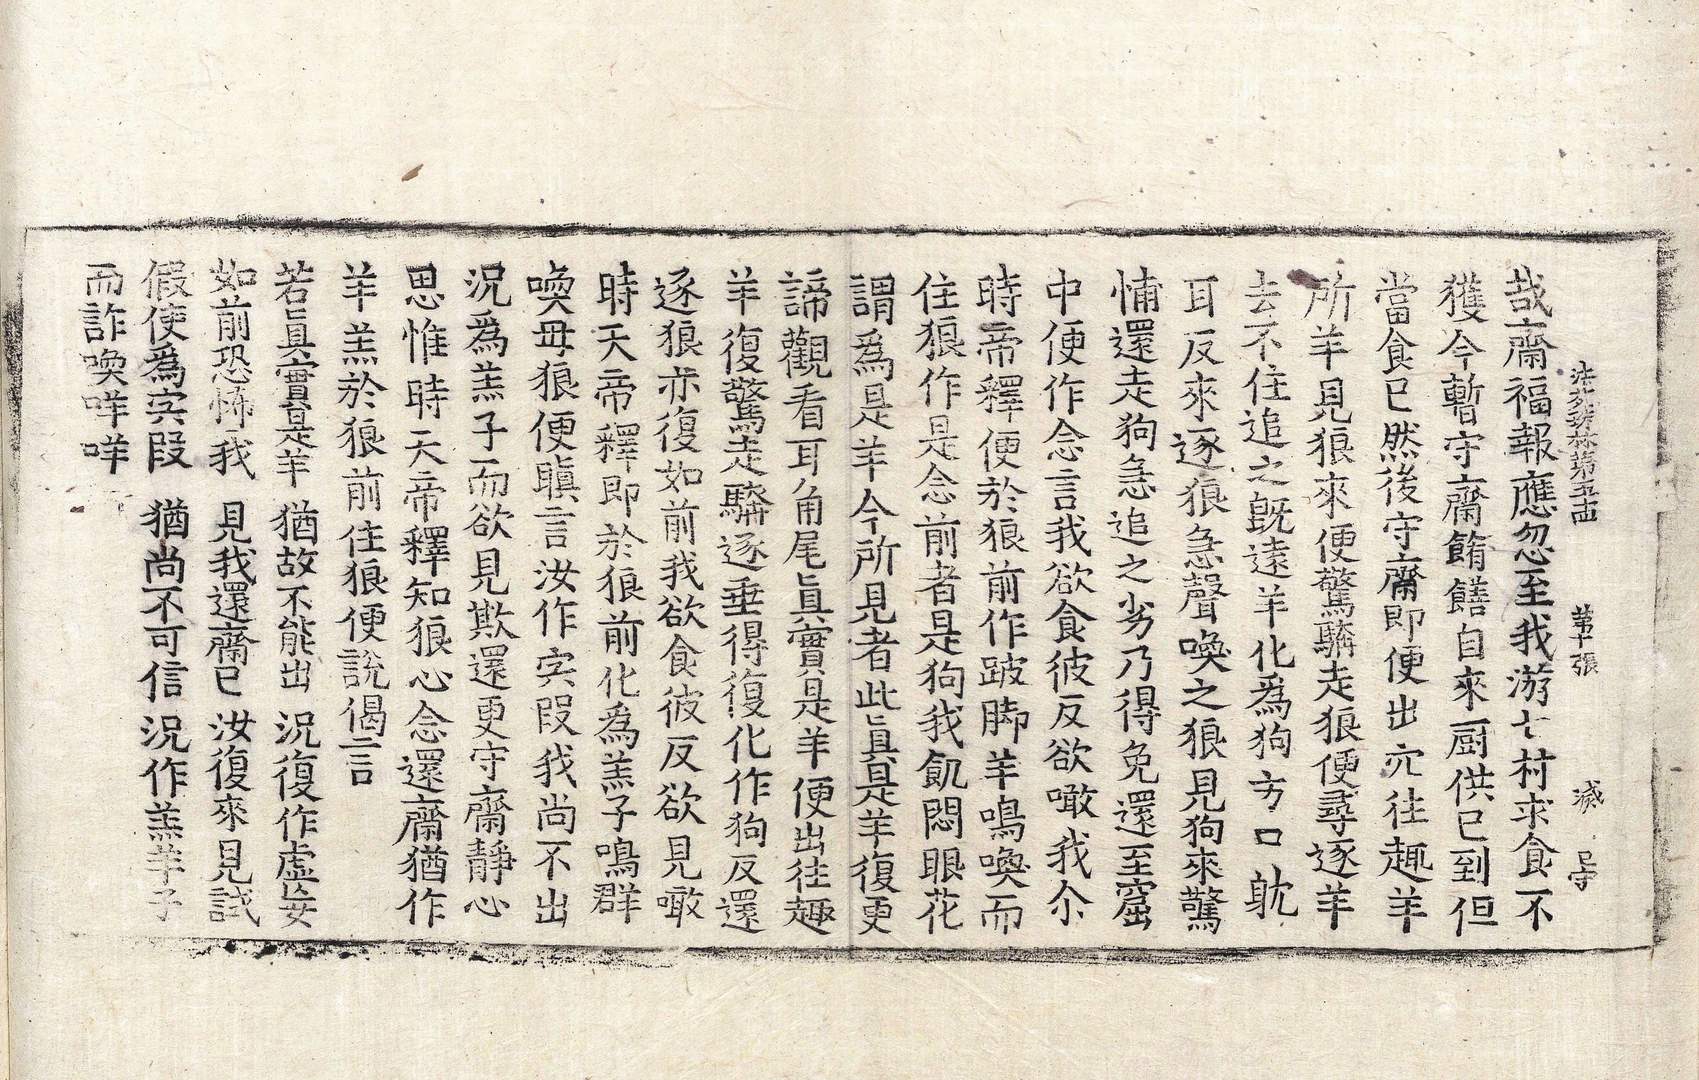 法苑珠林第五十四 第十張 滅 号
哉齋福報應忽至我游七村求食不
獲今暫守齋餚饍自來厨供已到但
當食已然後守齋即便出穴往趣羊
所羊見狼來便驚驎走狼便尋逐羊
去不住追之既遠羊化為狗方口耽
耳反來逐狼急聲喚之狼見狗來驚
怖還走狗急追之劣乃得免還至窟
中便作念言我欲食彼反欲噉我尒
時帝釋便於狼前作跛脚羊鳴喚而
住狼作是念前者是狗我飢悶眼花
謂為是羊今所見者此真是羊復更
諦觀看耳角尾真實是羊便出往趣
羊復驚走驎逐垂得復化作狗反還
逐狼亦復如前我欲食彼反欲見噉
時天帝釋即於狼前化為羔子鳴群
喚母狼便瞋言汝作宍段我尚不出
況為羔子而欲見欺還更守齋靜心
思惟時天帝釋知狼心念還齋猶作
羊羔於狼前住狼便說偈言
若真實是羊 猶故不能出 況復作虛妄
如前恐怖我 見我還齋已 汝復來見試
假使為宍段 猶尚不可信 況作羔羊子
而詐喚咩咩